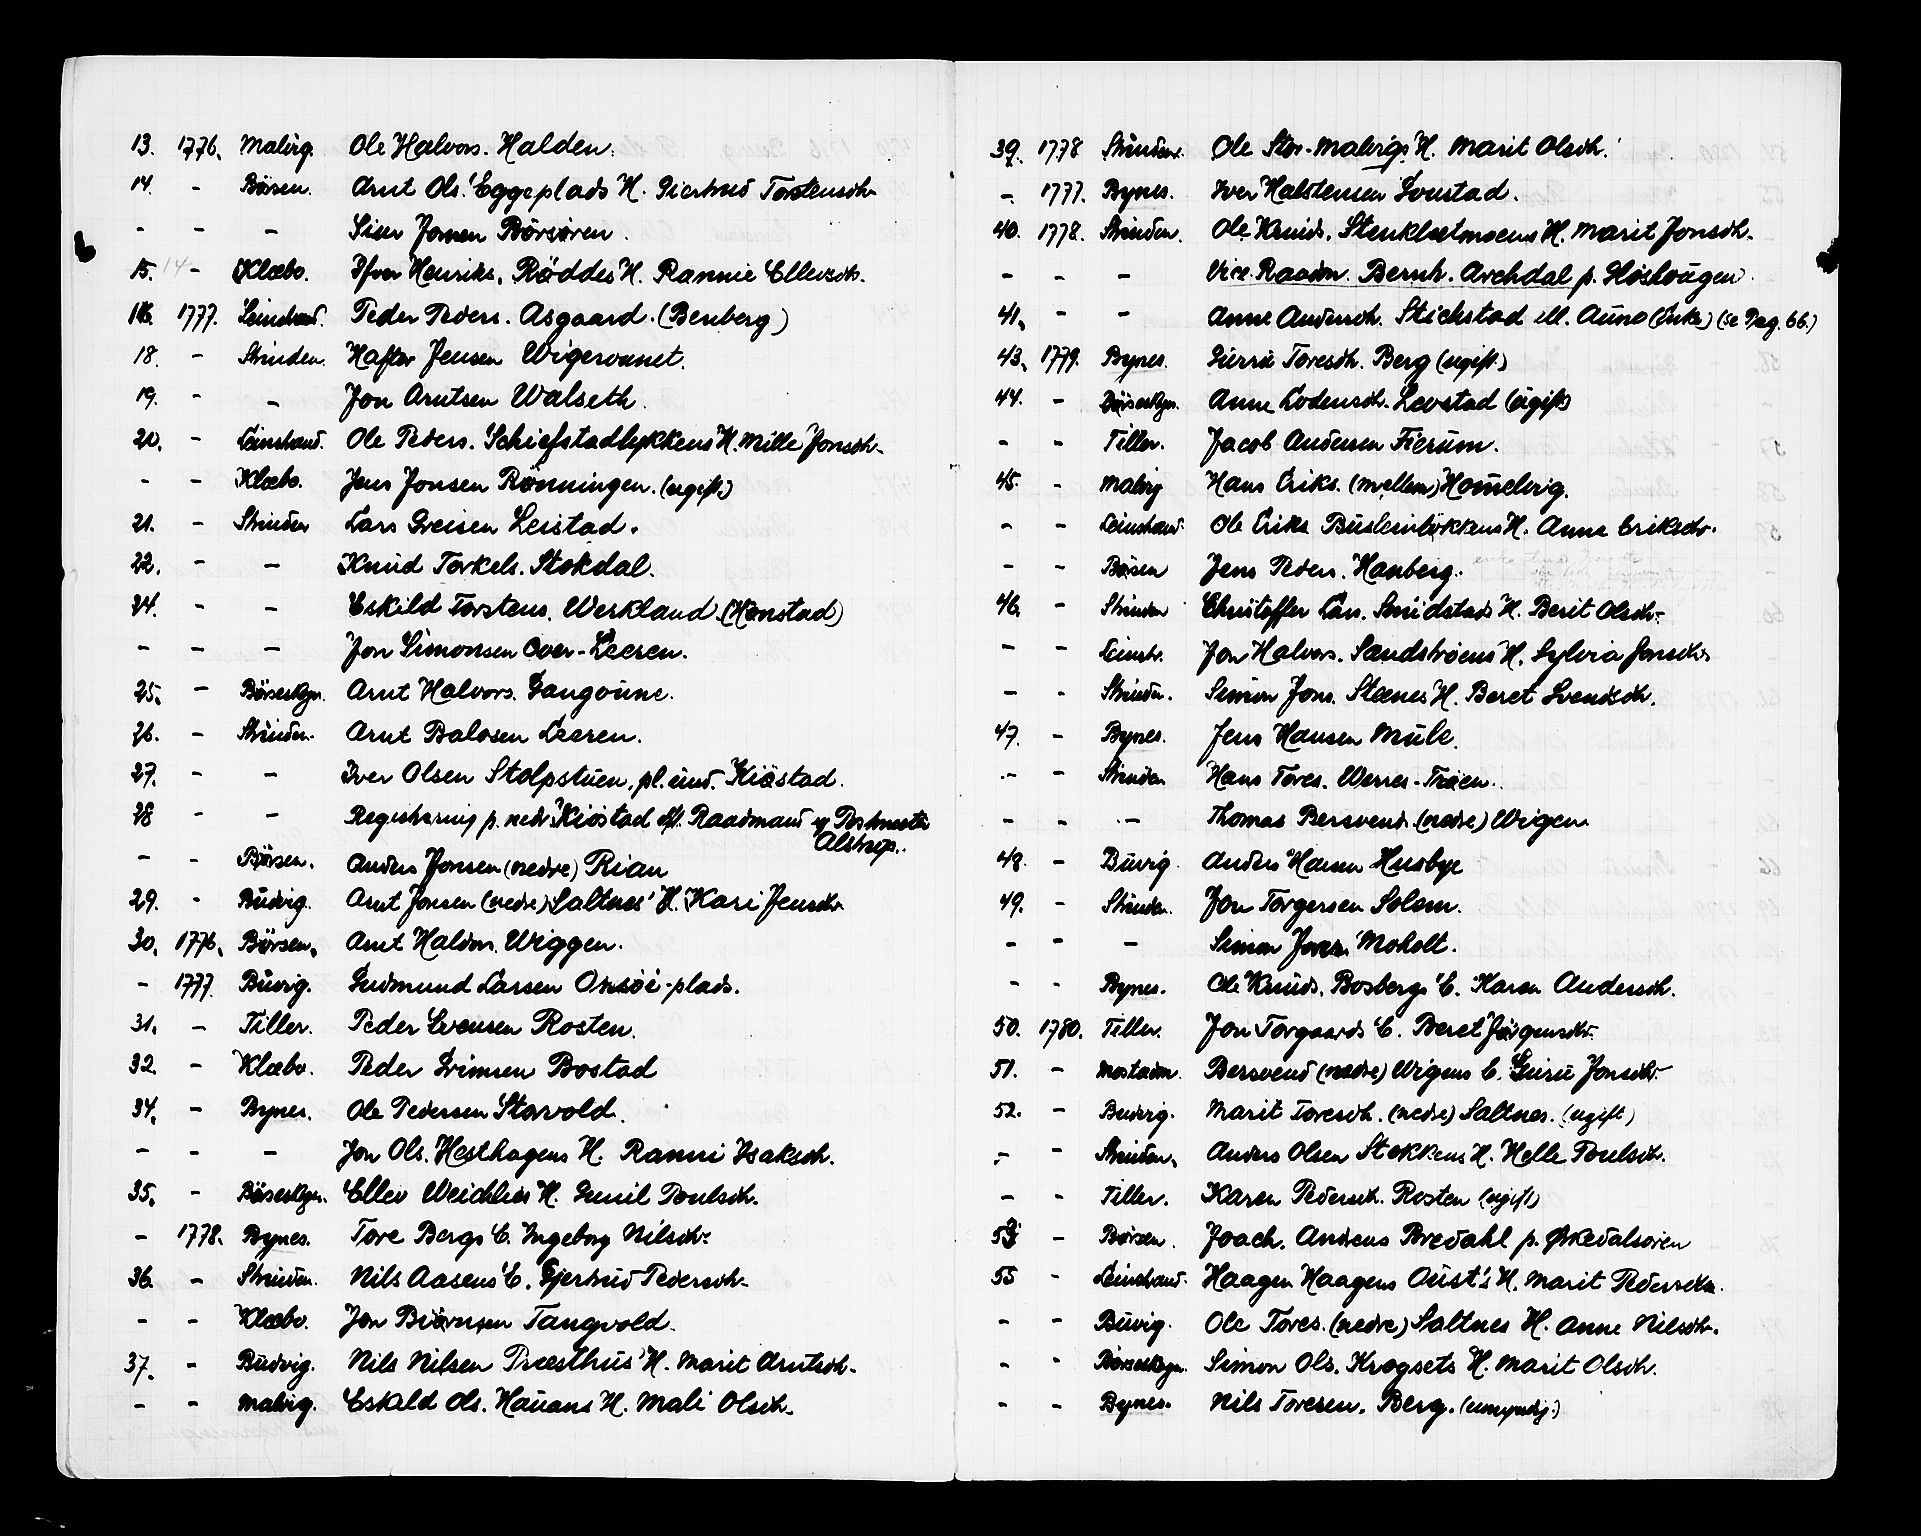 13. 1776. Malvig. Ole Halvors. Halden.
14. - Börsen. Arnt Ols. Eggeplads H. Giertrud Torstensdr.
- - - Siver Jonsen Börsören.
15. 14 - Klæbo. Ifver Henriks. Röddes H. Rannie Ellevsdr.
16. 1777. Leinstrand. Peder Peders. Asgaard. (Benberg)
18. - Strinden. Hafter Jensen Wigersvunet.
19. - - Jon Arntsen Walseth.
20. - Leinstrand. Ole Peders. Schiefstadlykkens H. Mille Jonsdr.
- - Klæbo. Jens Jonsen Rönningen. (ugift.)
21. - Strinden Lars Greisen Leistad.
22. - - Knud Torkels. Stokdal.
24. - - Eskild Torstens. Werkland. (Hanstad)
- - - Jon Simonsen Over-Leeren.
25. - Börseskgn. Arnt Halvors. Langoune.
26. - Strinden. Arnt Balosen Leeren.
27. - - Iver Olsen Stolpstuen, pl. und. Kiöstad.
28 - - Registrering p. nedr. Kiöstad eft. Raadmand og Postmester Alstrup.
- - Börsen. Anders Jonsen (nedre) Rian
29. - Budvig. Arnt Jonsen (nedre) Saltnes' H. Kari Jensdr.
30. 1776. Börsen. Arnt Haldor. Wiggen.
- 1777. Buvig. Gudmund Larsen Onsöi-plads.
31. - Tiller. Peder Svensen Rosten.
32. - Klæbo. Peder Grimsen Bostad
34. - Bynes. Ole Pedersen Storvold.
- - - Jon Ols. Hesthagens H. Ranni Isaksdr.
35. - Börseskgn. Ellev Weichlies H. Gunil Poulsdr.
- 1778. Bynes. Tore Bergs E. Ingeborg Nilsdr.
36. - Strinden. Nils Aasens E. Gjertrud Pedersdr.
- - Klæbo. Jon Biörnsen Tangvold.
37. - Budvig. Nils Nilsen Præsthus' H. Marit Arntsdr.
- - Malvig. Eskild Ols. Hauans H. Mali Olsdr.
39. 1778 Strinden. Ole Stor-Malvigs H. Marit Olsdr.
- 1777. Bynes. Iver Halstensen Loustad.
40. 1778. Strinden. Ole Knuds. Stenkletmoens H. Marit Jonsdr.
- - - Vice-Raadm. Bernh. Arechdal p. Höshougen.
41. - - Anne Andersdr. Stichstad ell. Auno (Enke) (se Pag. 66.)
43. 1779. Bynes. Gurru Toresdr. Berg (ugift.)
44. - Börseskgn. Anne Lodensdr. Leostad (ugift)
- - Tiller. Jacob Andersen Fierum.
45. - Malvig Hans Eriks. (mellem) Homelvig.
- - Leinstrand. Ole Eriks Busleinlökkens H. Anne Eriksdr.
- - Börsen Jens Peders. Hanberg.
46. - Strinden Christoffer Lars. Smidstads H. Berit Olsdr.
- - Leinstr. Jon Halvors. Sandströens H. Sylvia Jonsdr.
- - Strinden. Simon Jons. Stenes H. Beret Svendsdr.
47. - Bynes. Jens Hansen Mule.
- - Strinden Hans Tores. Werres-Trøen.
- - - Thomas Bersvends. (nedre) Wigen
48. - Buvig. Anders Hansen Husbye
49. - Strinden. Jon Torgersen Solem.
- - - Simon Jonsen Moholt.
- - Bynes. Ole Knuds. Bosbergs E. Karen Andersdr.
50. 1780. Tiller. Jon Torgaards E. Beret Jörgensdr.
51. - Mostadm. Bersvend (nedre) Wigens E. Guru Jonsdr.
52. - Budvig. Marit Toresdr. (nedre) Saltnes. (ugift)
- - Strinden. Anders Olsen Stokkens H. Helle Poulsdr.
- - Tiller. Karen Pedersdr. Rosten (ugift)
53 - Börsen. Joach. Andreas Bredahl p. Ørkedalsören
55 - Leinstrand. Haagen Haagens Oust's H. Marit Pedersdr.
- - Buvig. Ole Tores. (nedre) Saltnes H. Anne Nilsdr.
- - Börseskgn. Simon Ols. Krogsets H. Marit Olsdr.
- - Bynes. Nils Toresen. Berg. (umyndig.)